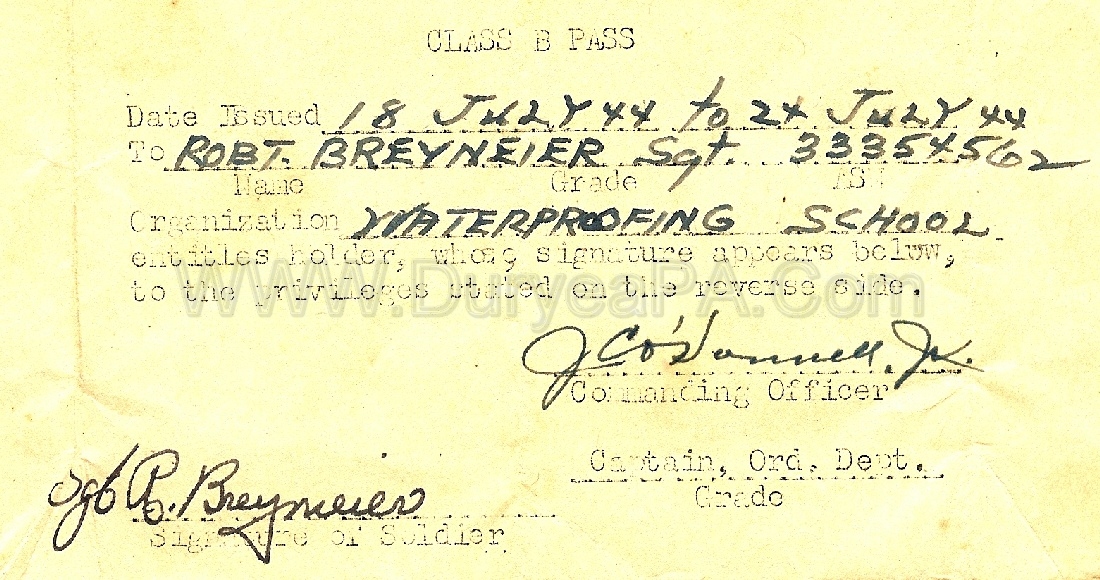 CLASS B PASS
Date Issued 18 JULY 44 to 24 JULY 44
To ROBT. BREYMEIER Sgt. 33354562
Name Grade ASN
Organization WATERPROOFING SCHOOL
entitles holder, whose signature appears below,
to the privileges stated on the reverse side.
WWW.DuryeaPA.Com
J C O'Donnell, Jr.
Commanding Officer
Captain, Ord. Dept.
Grade
Sgt R. Breymeier
Signature of Soldier